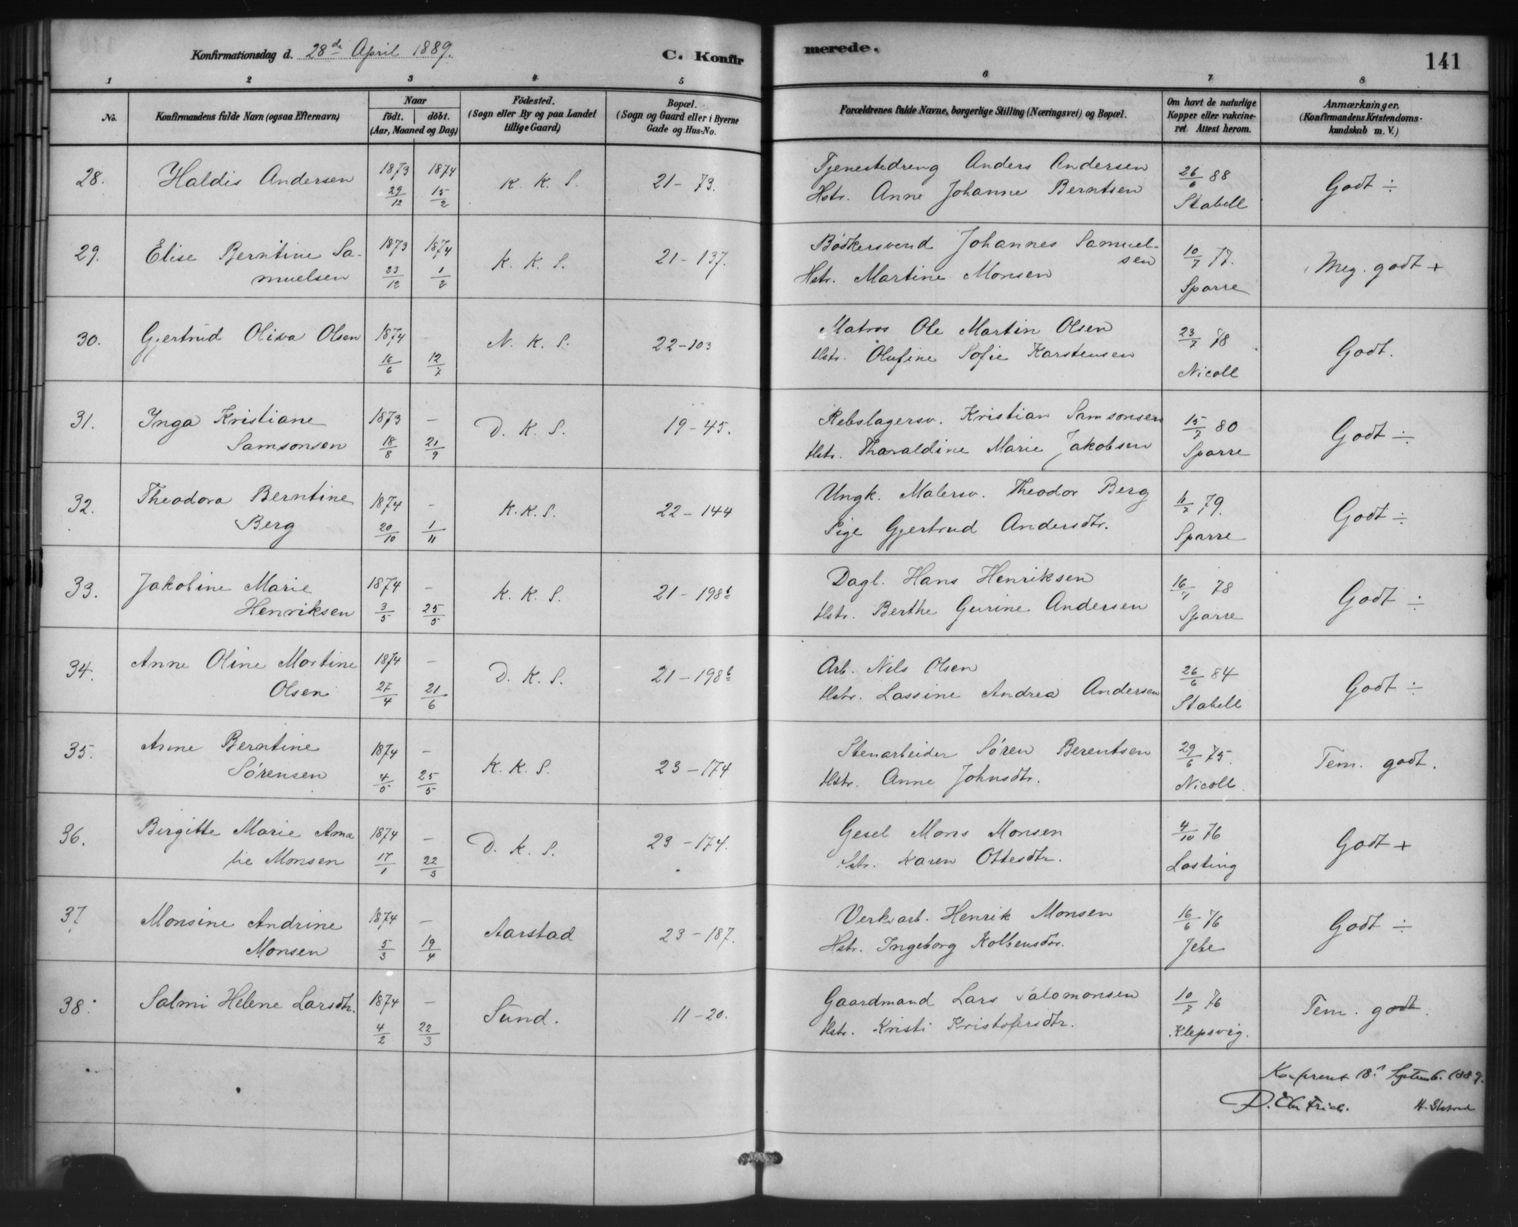 Konfirmationsdag d. 28de April 1889.
C. Konfirmerede.
141
1 2 3 4 5 6 7 8
No. | Konfirmandens fulde Navn (ogsaa Efternavn) | Naar født. døbt. (Aar, Maaned og Dag) | Fødested. (Sogn eller By og paa Landet tillige Gaard) | Bopæl. (Sogn og Gaard eller i Byerne Gade og Hus-No. | Forældrenes fulde Navne, borgerlige Stilling (Næringsvei) og Bopæl. | Om havt de naturlige Kopper eller vakcineret Attest herom. | Anmærkninger. (Konfirmandens Kristendomskundskab m. V.)
28. Haldis Andersen 1873 29/12 1874 15/2 K. K. S. 21 - 73. Tjenestedreng Anders Andersen
Hstr. Anne Johanne Berntsen 26/6 88 Stabell Godt ÷
29. Elise Berntine Samuelsen 1873 23/12 1874 1/2 K. K. S. 21 - 137. Bødkersvend Johannes Samuelsen
Hstr. Martine Monsen 10/7 77. Sparre Meg. godt +
30. Gjertrud Oliva Olsen 1874 16/6 - 12/7 N. K. S. 22 - 103 Matros Ole Martin Olsen
Hstr. Olufine Sofie Karstensen 23/7 78 Nicoll Godt.
31. Inga Kristiane Samsonsen 1873 18/8 - 21/9 D. K. S. 19 - 45. Rebslagersv. Kristian Samsonsen
Hstr. Tharaldine Marie Jakobsen 15/7 80 Sparre Godt ÷
32. Theodora Berntine Berg 1874 20/10 - 1/11 K. K. S. 22 - 144 Ungk. Malersv. Theodor Berg
Pige Gjertrud Andersdtr. 79. Sparre Godt ÷
33. Jakobine Marie Henriksen 1874 3/5 - 25/5 K. K. S. 21 - 198b Dagl. Hans Henriksen
Hstr. Berthe Gurine Andersen 78 Sparre Godt ÷
34. Anne Oline Martine Olsen 1874 27/4 - 21/6 D. K. S. 21 - 198b Arb. Nils Olsen
Hstr. Lassine Andrea Andersen 26/6 84 Stabell Godt ÷
35. Anne Berntine Sørensen 1874 4/5 - 25/5 K. K. S. 23 - 174 Stenarbeider Søren Berentsen
Hstr. Anne Johnsdtr. 29/6 75. Nicoll. Tem. godt.
36. Birgitte Marie Amalie Monsen 1874 17/1 - 22/3 D. K. S. 23 - 174. Gesel Mons Monsen
Hstr. Karen Ottesdtr. 4/10 76 Lasting Godt +
37. Monsine Andrine Monsen 1874 5/3 - 19/4 Aarstad 23 - 187. Verkarb. Henrik Monsen
Hstr. Ingeborg 16/6 76 Jebe Godt ÷
38. Salmi Helene Larsdtr. 1874 4/2 - 22/3 Sund. 11 - 20. Gaardmand Lars Salomonsen
Hstr. Kristi Kristofersdtr. 10/7 76 Klepsvig. Tem. godt.
Septemb. 1889.